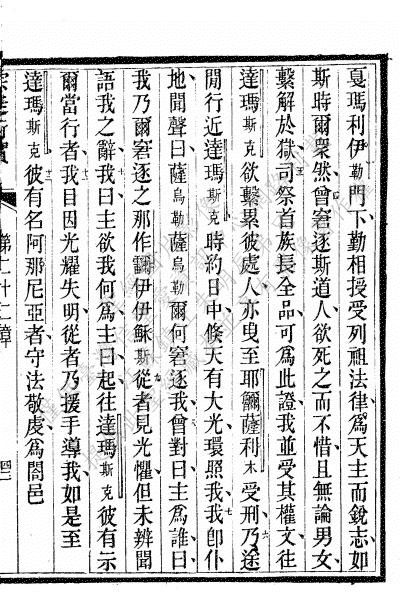 戛瑪利伊勒門下勤相授受列祖法律爲天主而銳志如
斯時爾衆然曾窘逐斯道人欲死之而不惜且無論男女
繫解於獄司祭首族長全品可爲此證我並受其權文往
達瑪斯克欲繫累彼處人亦曳至耶薩利木受刑乃途
閒行近達瑪斯克時約日中倏天有大光環照我我卽仆
地聞聲曰薩烏勒薩烏勒爾何窘逐我曾對曰主爲誰曰
我乃爾窘逐之那作伊伊穌斯從者見光懼但未辨聞
語我之辭我曰主欲我何爲主曰起往達瑪斯克彼有示
爾當行者我目因光耀失明從者乃援手導我如是至
達瑪斯克彼有名阿那尼亞者守法敬虔爲閤邑
第二十二章